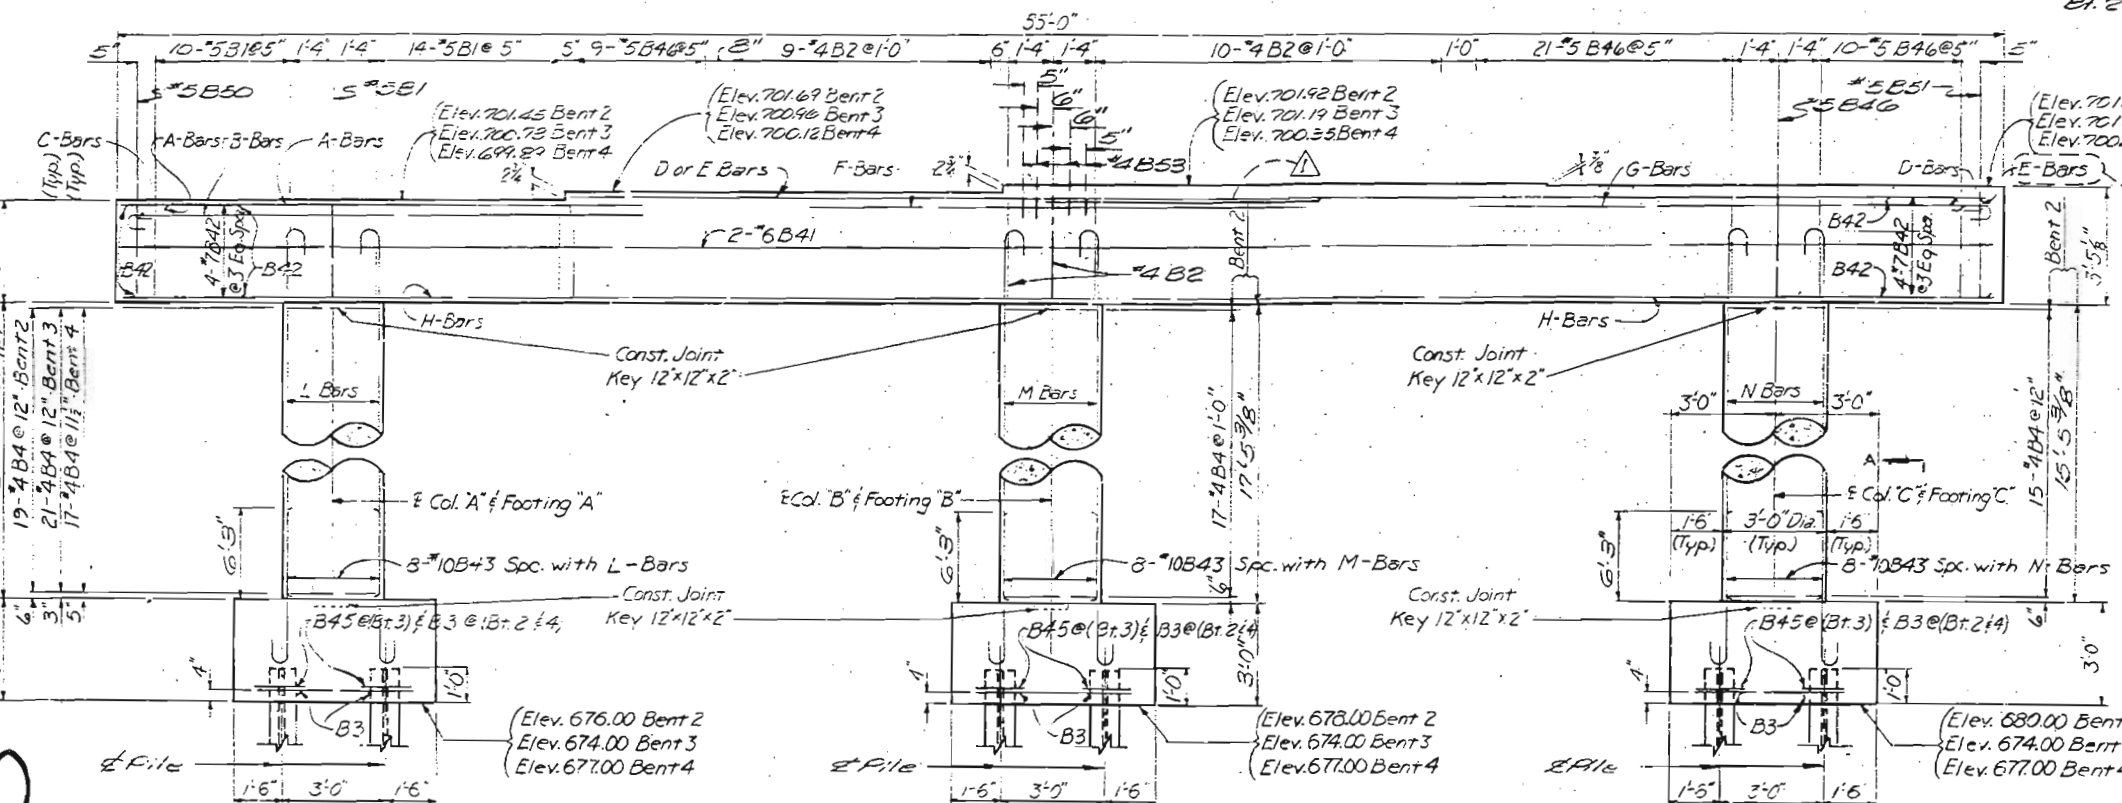 55'-0"
5" 10-#5B1@5" 1'-4" 1'-4" 14-#5B1@5" 5" 9-#5B46@5" 8" 9-#4B2@1'-0" 6" 1'-4" 1'-4" 10-#4B2@1'-0" 1'-0" 21-#5B46@5" 1'-4" 1'-4" 10-#5B46@5" 5"
#5B50
#5B1
5"
6"
6"
5"
#4B53
#5B51
#5B46
(Elev. 701.45 Bent 2
Elev. 700.73 Bent 3
Elev. 699.89 Bent 4
(Elev. 701.69 Bent 2
Elev. 700.96 Bent 3
Elev. 700.12 Bent 4
(Elev. 701.92 Bent 2
Elev. 701.19 Bent 3
Elev. 700.35 Bent 4
(Elev. 701
Elev. 701
Elev. 700
C-Bars
A-Bars
B-Bars
A-Bars
(Typ.)
(Typ.)
2¾"
D or E Bars
F-Bars
2¾"
1
⅞"
G-Bars
D-Bars
E-Bars
B42
4-#7B42
@3 Eq. Spc.
B42
2-#6B41
#4B2
Bent 2
B42
B42
4-#7B42
@3 Eq. Spc.
Bent 2
3'-5⅛"
H-Bars
H-Bars
Const. Joint
Key 12"x12"x2"
Const. Joint
Key 12"x12"x2"
19-#4B4@12" Bent 2
21-#4B4@12" Bent 3
17-#4B4@11½" Bent 4
L Bars
M Bars
N Bars
3'-0" 3'-0"
17-#4B4@1'-0"
17'-5⅜"
15-#4B4@12"
15'-5⅜"
A
℄ Col. "A" & Footing "A"
℄ Col. "B" & Footing "B"
℄ Col. "C" & Footing "C"
1'-6" 3'-0" Dia. 1'-6"
(Typ.) (Typ.) (Typ.)
6'-3"
6'-3"
6'-3"
8-#10B43 Spc. with L-Bars
8-#10B43 Spc. with M-Bars
8-#10B43 Spc. with N-Bars
6"
3"
5"
6"
6"
Const. Joint
Key 12"x12"x2"
Const. Joint
Key 12"x12"x2"
B45@(Bt.3) & B3@(Bt.2&4)
B45@(Bt.3) & B3@(Bt.2&4)
B45@(Bt.3) & B3@(Bt.2&4)
4"
1'-0"
4"
1'-0"
3'-0"
4"
1'-0"
3'-0"
B3
B3
B3
(Elev. 676.00 Bent 2
Elev. 674.00 Bent 3
Elev. 677.00 Bent 4
(Elev. 678.00 Bent 2
Elev. 674.00 Bent 3
Elev. 677.00 Bent 4
(Elev. 680.00 Bent
Elev. 674.00 Bent
Elev. 677.00 Bent 4
℄ Pile
℄ Pile
℄ Pile
1'-6" 3'-0" 1'-6"
1'-6" 3'-0" 1'-6"
1'-6" 3'-0" 1'-6"